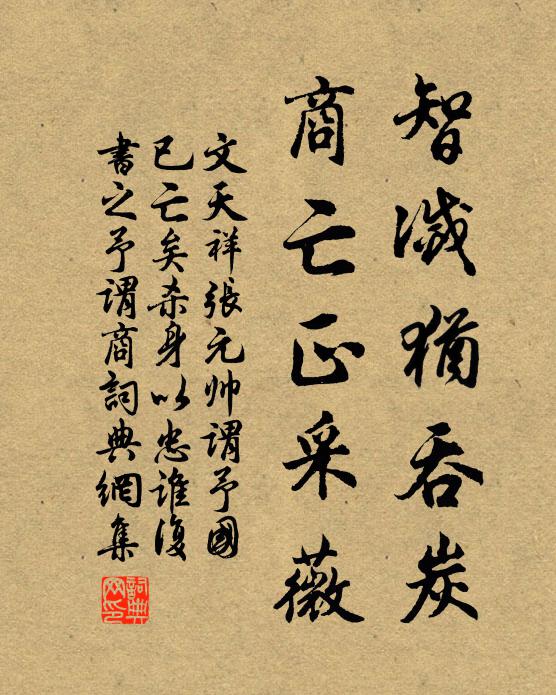 智滅猶吞炭
商亡正采薇
文天祥張元帅謂予國
已亡矣杀身以忠誰復
書之予謂商詞典網集
詞典网印